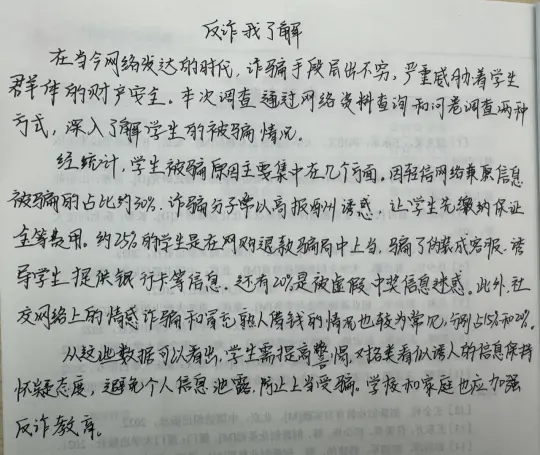 反诈我了解
在当今网络发达的时代，诈骗手段层出不穷，严重威胁着学生
群体的财产安全。本次调查通过网络资料查询和问卷调查两种
方式，深入了解学生的被骗情况。
经统计，学生被骗原因主要集中在几个方面。因轻信网络兼职信息
被骗的占比约30%，诈骗分子常以高报酬诱惑，让学生先缴纳保证
金等费用。约25%的学生是在网购退款骗局中上当，骗子伪装成客服，诱
导学生提供银行卡等信息。还有20%是被虚假中奖信息迷惑。此外，社
交网络上的情感诈骗和冒充熟人借钱的情况也较为常见，分别占15%和
从这些数据可以看出，学生需提高警惕，对各类看似诱人的信息保持
怀疑态度，避免个人信息泄露，防止上当受骗。学校和家庭也应加强
反诈教育。